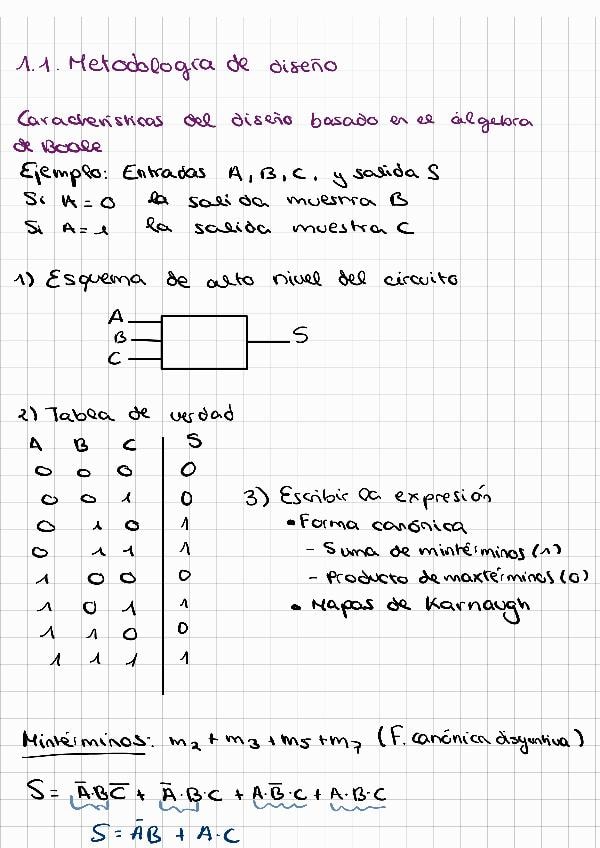 1.1. Metodología de diseño
Características del diseño basado en el álgebra
de Boole
Ejemplo: Entradas A, B, C, y salida S
Si A = 0 la salida muestra B
Si A = 1 la salida muestra C
1) Esquema de alto nivel del circuito
A
B
C
S
2) Tabla de verdad
A B C S
0 0 0 0
0 0 1 0
0 1 0 1
0 1 1 1
1 0 0 0
1 0 1 1
1 1 0 0
1 1 1 1
3) Escribir la expresión
• Forma canónica
- Suma de mintérminos (1)
- Producto de maxtérminos (0)
• Mapas de Karnaugh
Mintérminos: m₂ + m₃ + m₅ + m₇ (F. canónica disyuntiva)
S = A̅·B·C̅ + A̅·B·C + A·B̅·C + A·B·C
S = A̅B + A·C